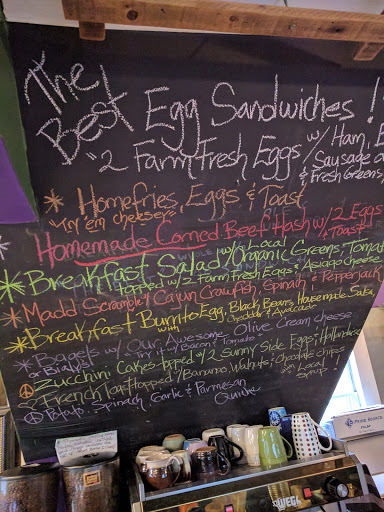 The
Best Egg Sandwiches!
"2 Farm Fresh Eggs w/ Ham,
Sausage
& Fresh Greens,
Homefries, Eggs & Toast
"Try 'em cheesey"
Homemade Corned Beef Hash w/ 2 Eggs
& Toast
Breakfast Salad w/ Local
Organic Greens, Tomato
topped w/ 2 Farm Fresh Eggs & Asiago cheese
Madd Scramble w/ Cajun Crawfish, Spinach & Pepperjack
Breakfast Burrito Egg, Black Beans, Housemade Salsa,
with Cheddar & Avocado
Bagels w/ Our Awesome Olive Cream cheese
or Bialys Try it w/ Bacon & Tomato
Zucchini Cakes topped w/ 2 Sunny Side Eggs & Hollandaise
French Toast topped w/ Banana, Walnuts, & Chocolate chips
& Local
Syrup
Potato, Spinach, Garlic & Parmesan
Quiche
WEGA